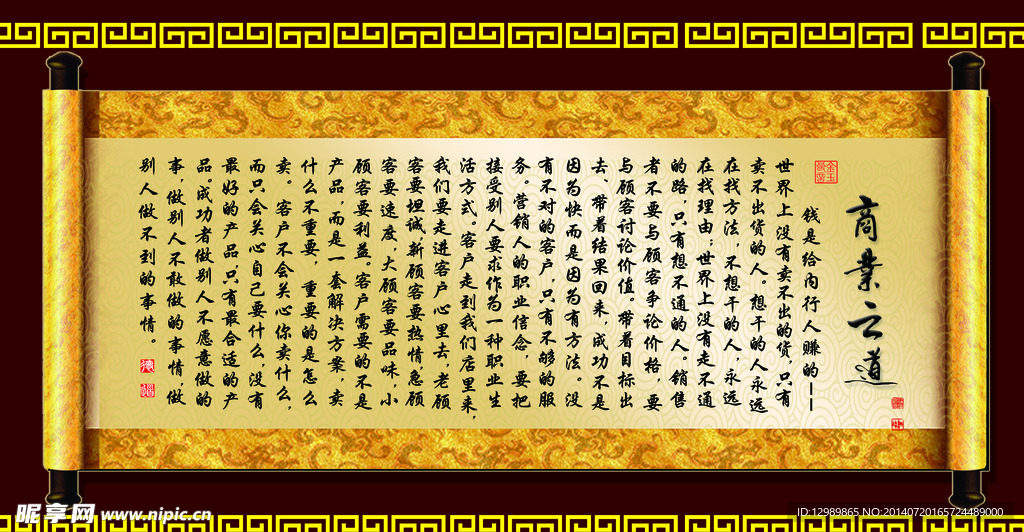 商业之道
钱是给内行人赚的——
世界上没有卖不出的货,只有
卖不出货的人。想干的人永远
在找方法,不想干的人,永远
在找理由;世界上没有走不通
的路,只有想不通的人。销售
者不要与顾客争论价格,要
与顾客讨论价值。带着目标出
去、带着结果回来,成功不是
因为快而是因为有方法。没
有不对的客户,只有不够的服
务。营销人的职业信念,要把
接受别人要求作为一种职业生
活方式。客户走到我们店里来,
我们要走进客户心里去、老顾
客要坦诚,新顾客要热情,急顾
客要速度,大顾客要品味,小
顾客要利益。客户需要的不是
产品,而是一套解决方案,卖
什么不重要,重要的是怎么
卖。客户不会关心你卖什么,
而只会关心自己要什么。没有
最好的产品只有最合适的产
品。成功者做别人不愿意做的
事,做别人不敢做的事情,做
别人做不到的事情。
昵享网 www.nipic.cn
ID:12989865 NO:20140720165724489000